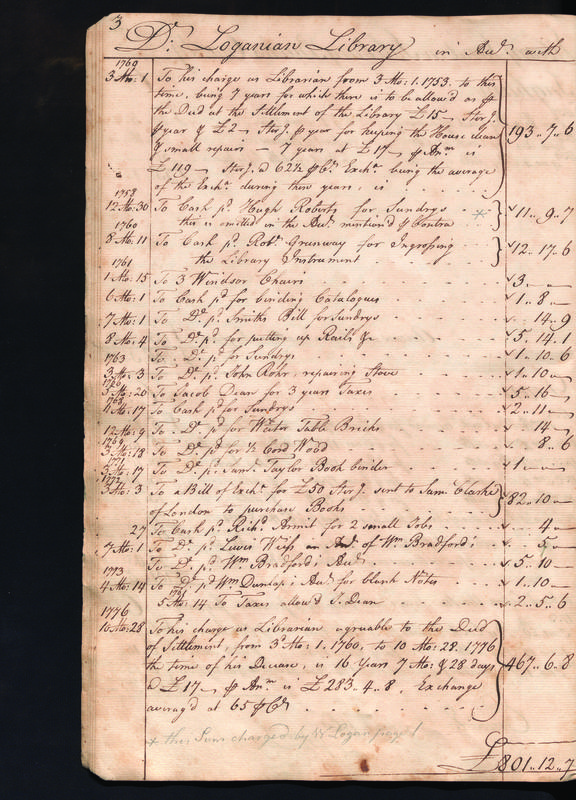 3
Dr. Loganian Library in Acct. with
1769
3 Mo: 1 To his charge as Librarian from 3 Mo: 1. 1753. to this
time, being 7 years for which there is to be allow'd as ⅌
the Deed at the Settlement of the Library £15 — Sterg.
⅌ year & £2 — Sterg. ⅌ year for keeping the House clean
& small repairs — 7 years at £17 — ⅌ Anm. is
£119 — Sterg. @ 62½ ⅌ Ct. Exche. being the average
of the Exche. during these years, is 193..7..6
1758
12 Mo: 30 To Cash pd. Hugh Roberts for Sundrys * 11..9..7
this is omitted in the Acct. mention'd ⅌ Contra
1760
8 Mo: 11 To Cash pd. Robt. Greenway for Ingrossing
the Library Instrument 12..17..6
1761
1 Mo: 15 To 3 Windsor Chairs 3..—
6 Mo: 1 To Cash pd for binding Catalogues 1..8..—
7 Mo: 1 To Do. pd. Smiths Bill for Sundrys —..14..9
8 Mo: 4 To Do. pd. for putting up Rails &c 5..14..1
1763
To Do. pd. for Sundrys 1..10..6
3 Mo: 3 To Do. pd. John Rohr, repairing Stove 1..10..
5 Mo: 20 To Jacob Dean for 3 years Taxes 5..16..
4 Mo: 17 To Cash pd for Sundrys 2..11..
12 Mo: 9 To Do. pd for Water Table Bricks 14
1769
3 Mo: 18 To Do. pd for ½ Cord Wood 8..6
1771
3 Mo: 17 To Do. pd Saml. Taylor Book binder 1..—
1772
3 Mo: 3 To a Bill of Exche. for £50 Sterg. sent to Sam. Clarke
of London to purchase Books 82..10..
27 To Cash pd. Richd. Armit for 2 small Jobs 4
7 Mo: 1 To Do. pd. Lewis Weiss an Acct. of Wm. Bradford's 5
To Do. pd. Wm. Bradford's Acct. 5..10
1773
4 Mo: 14 To Do. pd Wm Dunlap's Acct for blank Notes 1..10
1761
5 Mo: 14 To Taxes allow'd J. Dean 2..5..6
1776
10 Mo: 28 To his charge as Librarian agreable to the Deed
of Settlement, from 3d Mo: 1. 1760, to 10 Mo: 28. 1776
the time of his Decease, is 16 Years 7 Mo: & 28 days
@ £17 — ⅌ Anm. is £283..4..8. Exchange
averag'd at 65 ⅌ Ct. 467..6..8
* this Sum charged by W Logan page 1
£801..12..7